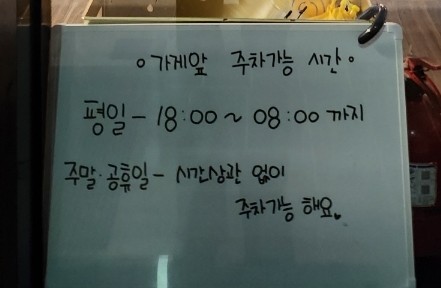 ◦가게앞 주차가능 시간◦
평일 - 18:00 ~ 08:00 까지
주말·공휴일 - 시간상관 없이
주차가능 해요♥